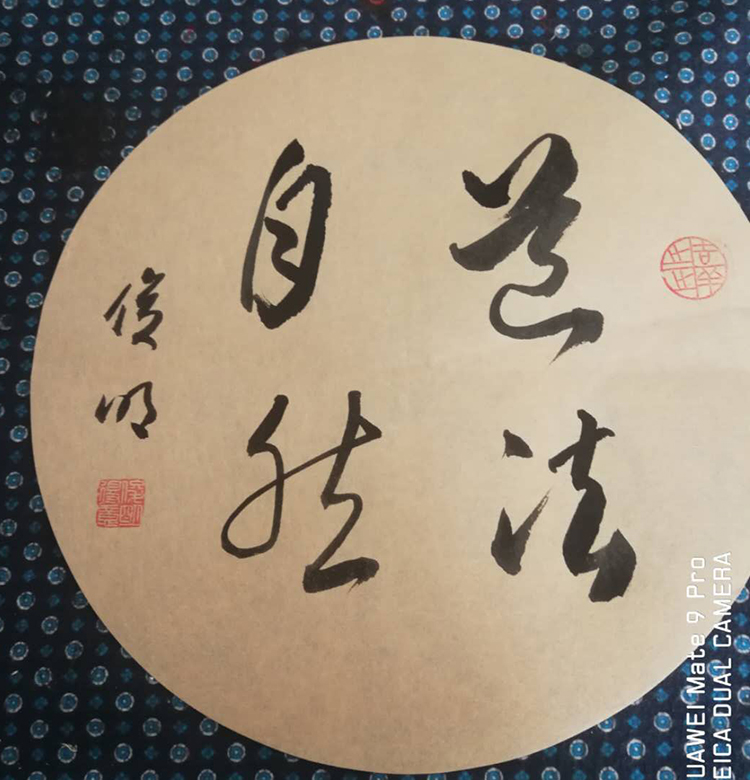 道法
自然
俊明
UAWEI Mate 9 Pro
EICA DUAL CAMERA